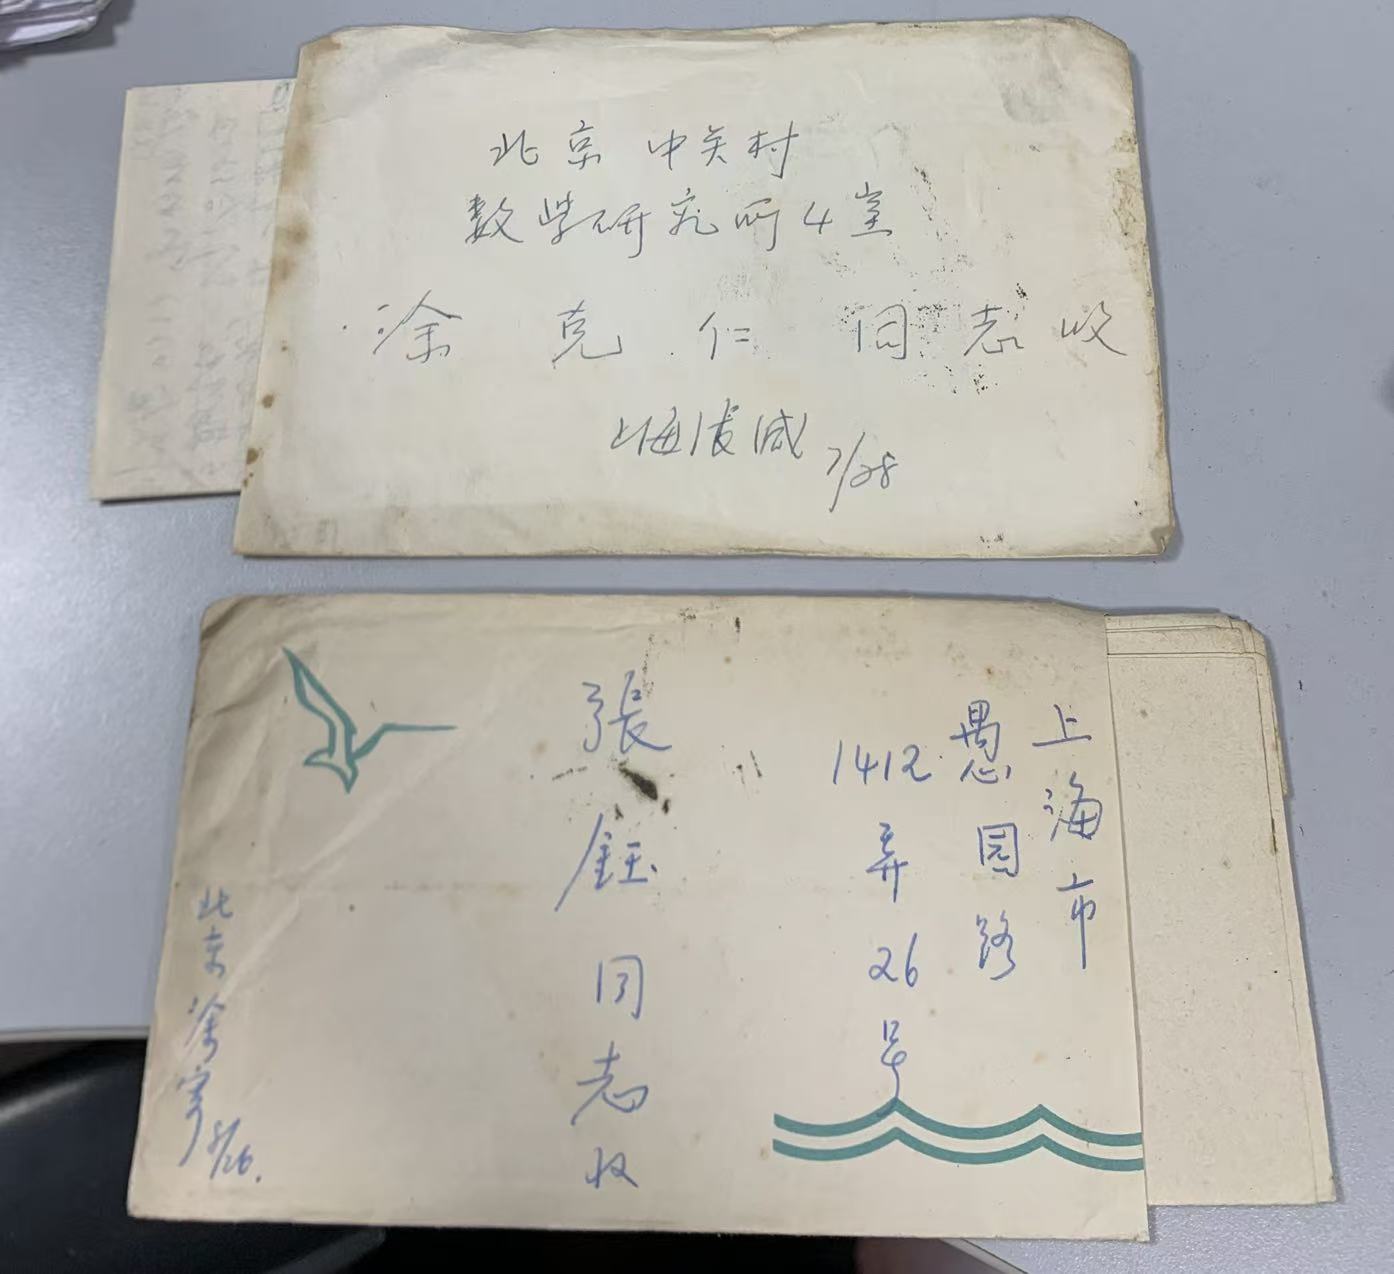 北京 中关村
数学研究所4室
涂克仁同志收
上海 7/28
上海市
愚园路
1412弄26号
張鈺同志收
北京涂寄 8/26.